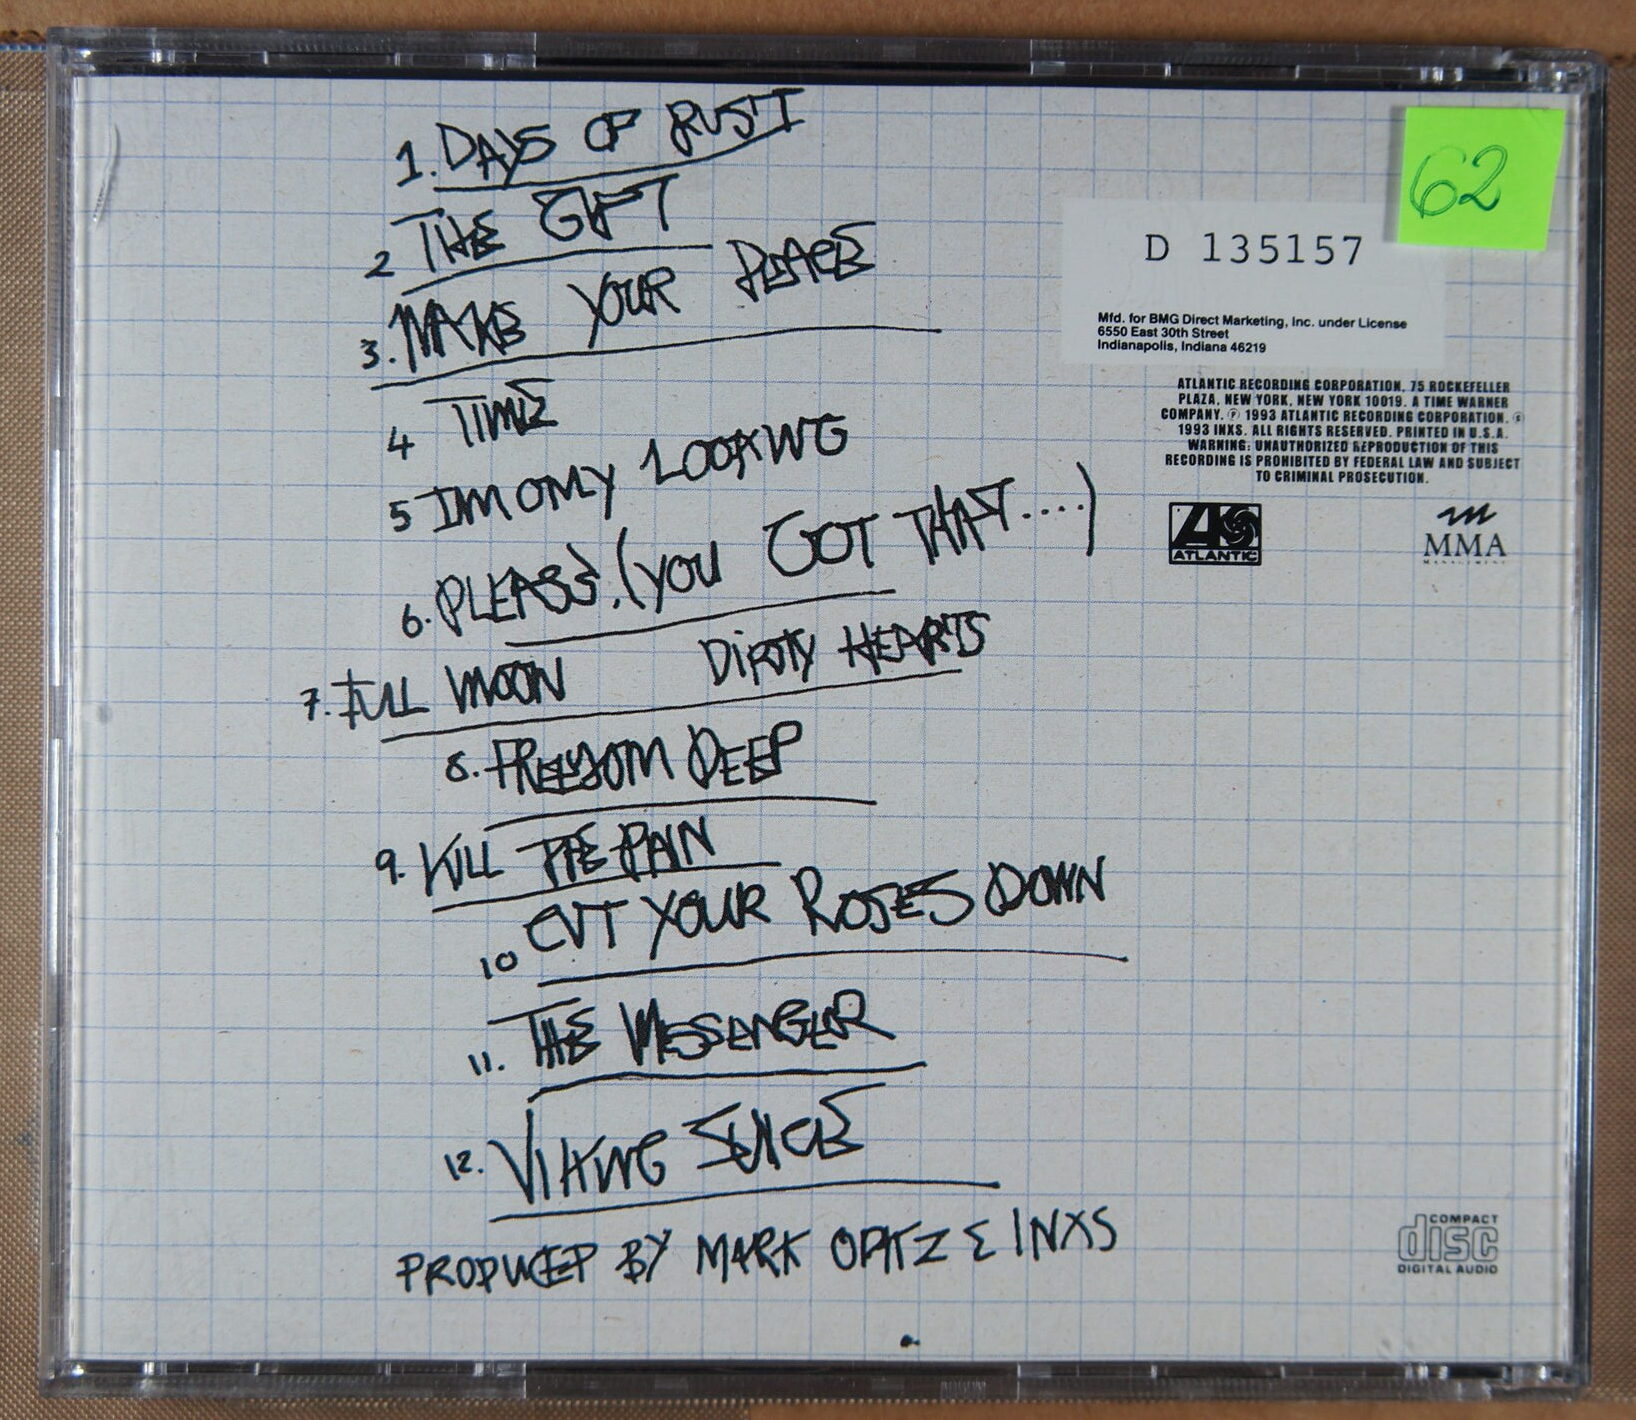 1. DAYS OF RUST
2 THE GIFT
3. MAKE YOUR PEACE
4 TIME
5 IM ONLY LOOKING
6. PLEASE. (YOU GOT THAT....)
7. FULL MOON DIRTY HEARTS
8. FREEDOM DEEP
9. KILL THE PAIN
10 CUT YOUR ROSES DOWN
11. THE MESSENGER
12. VIKING JUICE
PRODUCED BY MARK OPITZ & INXS
62
D 135157
Mfd. for BMG Direct Marketing, Inc. under License
6550 East 30th Street
Indianapolis, Indiana 46219
ATLANTIC RECORDING CORPORATION, 75 ROCKEFELLER
PLAZA, NEW YORK, NEW YORK 10019. A TIME WARNER
COMPANY. ℗ 1993 ATLANTIC RECORDING CORPORATION. ©
1993 INXS. ALL RIGHTS RESERVED. PRINTED IN U.S.A.
WARNING: UNAUTHORIZED REPRODUCTION OF THIS
RECORDING IS PROHIBITED BY FEDERAL LAW AND SUBJECT
TO CRIMINAL PROSECUTION.
ATLANTIC
MMA
MANAGEMENT
COMPACT
disc
DIGITAL AUDIO